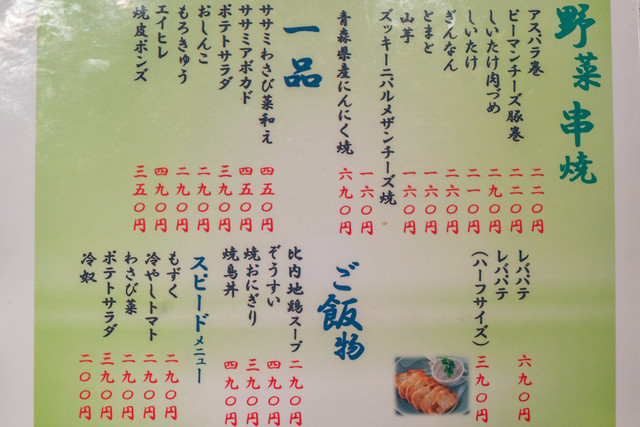 野菜串焼
アスパラ巻 二二〇円
ピーマンチーズ豚巻 二二〇円
しいたけ肉づめ 二九〇円
しいたけ 二一〇円
ぎんなん 二六〇円
とまと 一六〇円
山芋 一六〇円
ズッキーニパルメザンチーズ焼 一六〇円
青森県産にんにく焼 六九〇円
一品
ササミわさび菜和え 四五〇円
ササミアボカド 四五〇円
ポテトサラダ 三九〇円
おしんこ 二九〇円
もろきゅう 二九〇円
エイヒレ 四九〇円
焼皮ポンズ 三五〇円
レバパテ 六九〇円
レバパテ
(ハーフサイズ) 三九〇円
ご飯物
比内地鶏スープ 二九〇円
ぞうすい 四九〇円
焼おにぎり 三九〇円
焼鳥丼 四九〇円
スピードメニュー
もずく 二九〇円
冷やしトマト 二九〇円
わさび菜 二九〇円
ポテトサラダ 三九〇円
冷奴 二〇〇円